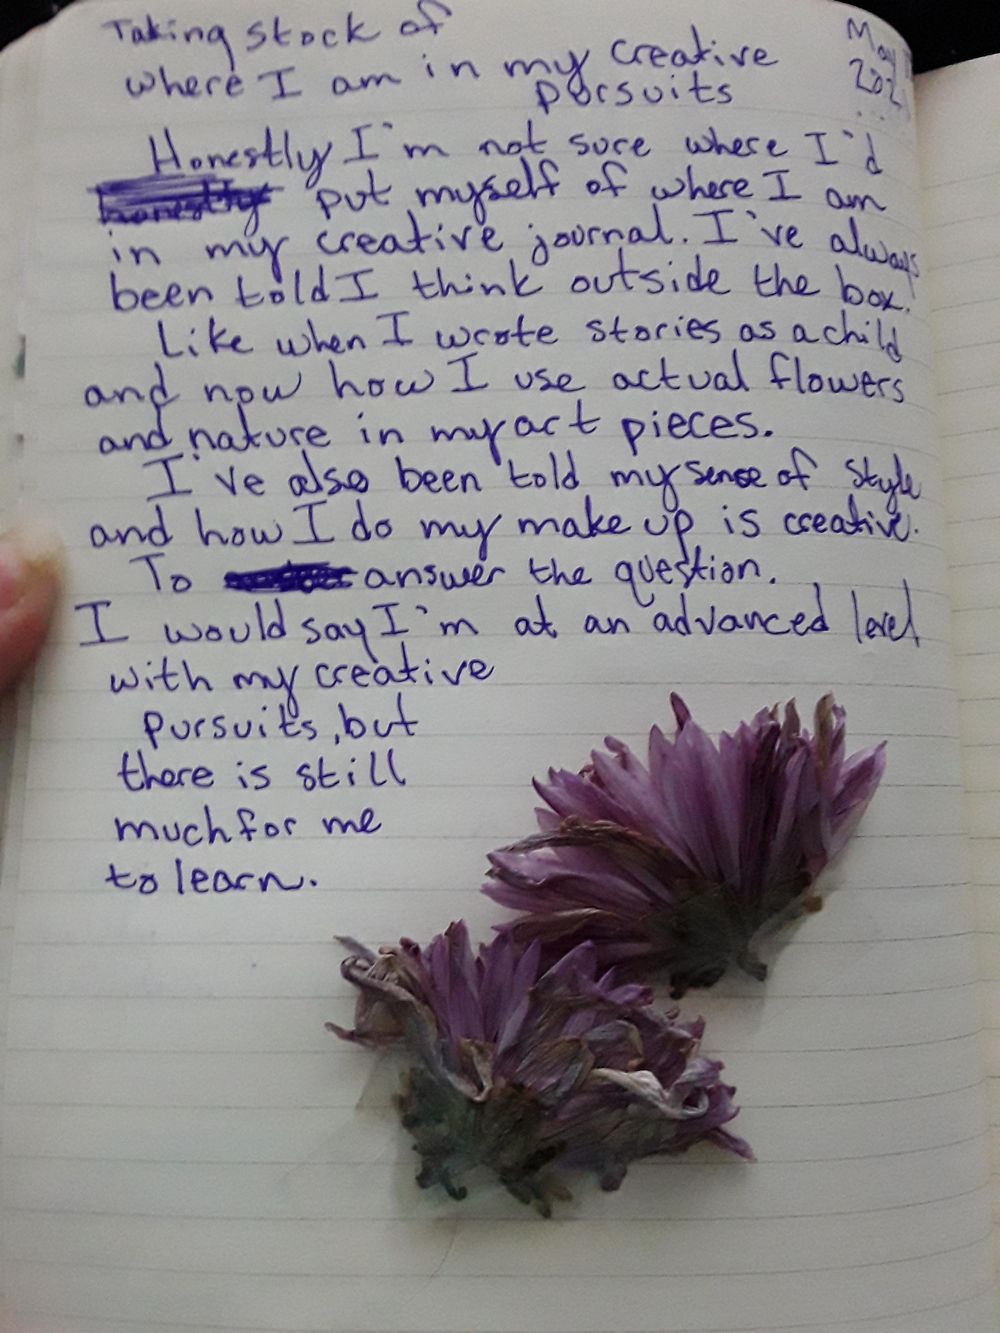 Taking stock of
where I am in my creative
pursuits
May
Honestly I'm not sure where I'd
honestly put myself of where I am
in my creative journal. I've always
been told I think outside the box.
Like when I wrote stories as a child
and now how I use actual flowers
and nature in my art pieces.
I've also been told my sense of style
and how I do my make up is creative.
To answer the question.
I would say I'm at an advanced level
with my creative
pursuits, but
there is still
much for me
to learn.